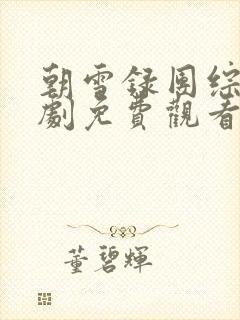 朝雪録国综
劇免費觀看
董碧輝